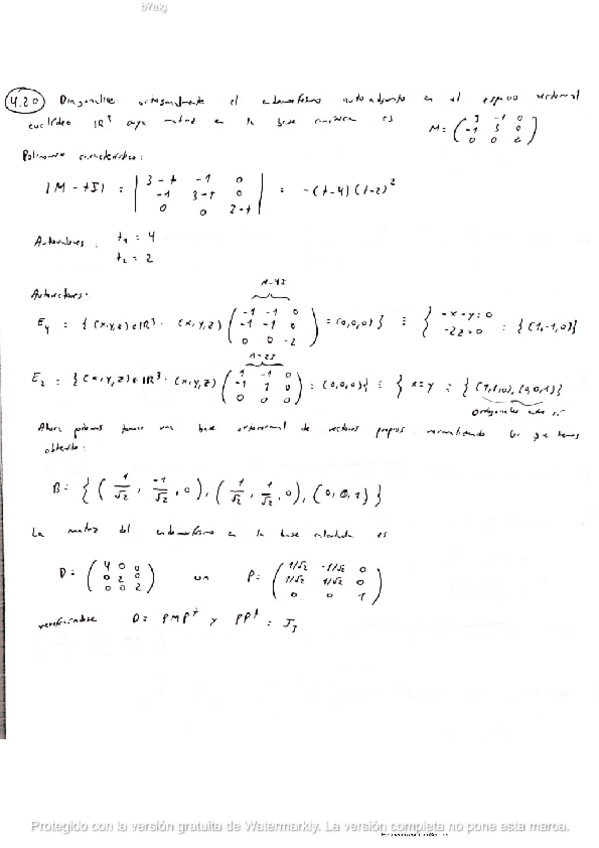 b7uig
4.20 Diagonalice ortogonalmente el endomorfismo autoadjunto en el espacio vectorial
euclídeo ℝ³ cuya matriz en la base canónica es M = (3 -1 0; -1 3 0; 0 0 2)
Polinomio característico:
|M - tI| = |3-t -1 0; -1 3-t 0; 0 0 2-t| = -(t-4)(t-2)²
Autovalores: t₁ = 4
t₂ = 2
A-4I
Autovectores:
E₄ = {(x,y,z)∈ℝ³ : (x,y,z) (-1 -1 0; -1 -1 0; 0 0 -2) = (0,0,0)} ≡ { -x-y=0; -2z=0 = {(1,-1,0)}
A-2I
E₂ = {(x,y,z)∈ℝ³ : (x,y,z) (1 -1 0; -1 1 0; 0 0 0) = (0,0,0)} ≡ { x=y = {(1,1,0), (0,0,1)}
Ortogonales entre sí
Ahora podemos tomar una base ortonormal de vectores propios normalizando los que hemos
obtenido:
B = {(1/√2, -1/√2, 0), (1/√2, 1/√2, 0), (0,0,1)}
La matriz del endomorfismo en la base calculada es
D = (4 0 0; 0 2 0; 0 0 2) con P = (1/√2 -1/√2 0; 1/√2 1/√2 0; 0 0 1)
verificándose D = PMPᵗ y PPᵗ = I₃
Protegido con la versión gratuita de Watermarkly. La versión completa no pone esta marca.